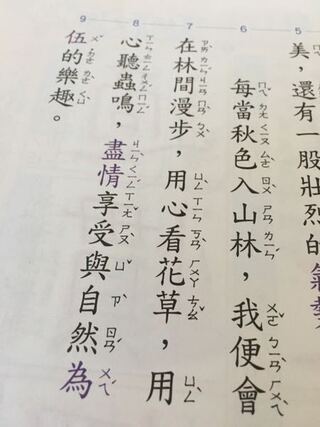 5
美，還有一股壯烈的氣勢
6
每當秋色入山林，我便會
7
在林間漫步，用心看花草，用
8
心聽蟲鳴，盡情享受與自然為
9
伍的樂趣。